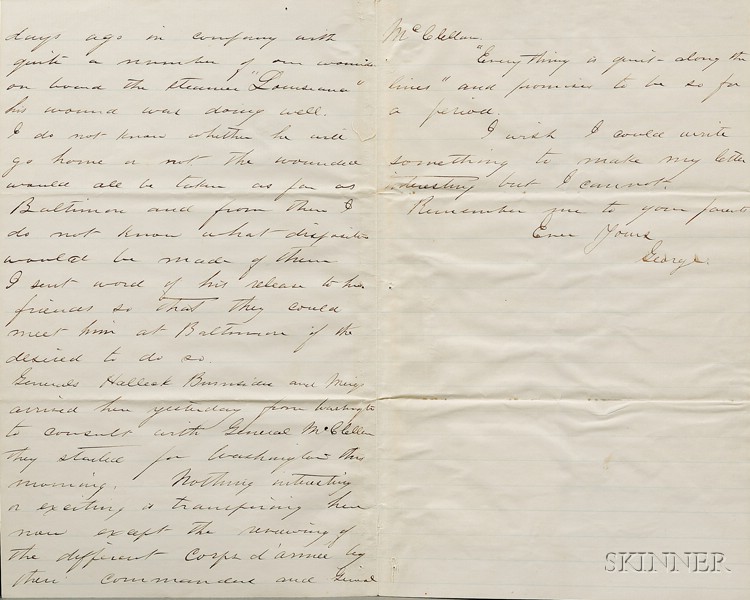 days ago in company with
quite a number of our wounded
on board the steamer "Louisiana"
his wound was doing well.
I do not know whether he will
go home or not the wounded
would all be taken as far as
Baltimore and from there I
do not know what disposition
would be made of them
I sent word of his release to his
friends so that they could
meet him at Baltimore if the
desired to do so.
Generals Halleck Burnside and Meigs
arrived here yesterday from Washington
to consult with General McClellan
they started for Washington this
morning. Nothing interesting
or exciting is transpiring here
now except the reviewing of
the different Corps d'armee by
their commanders and General
McClellan.
"Everything is quiet along the
lines" and promises to be so for
a period.
I wish I could write
something to make my letter
interesting but I cannot.
Remember me to your parents
Ever Yours
George.
SKINNER